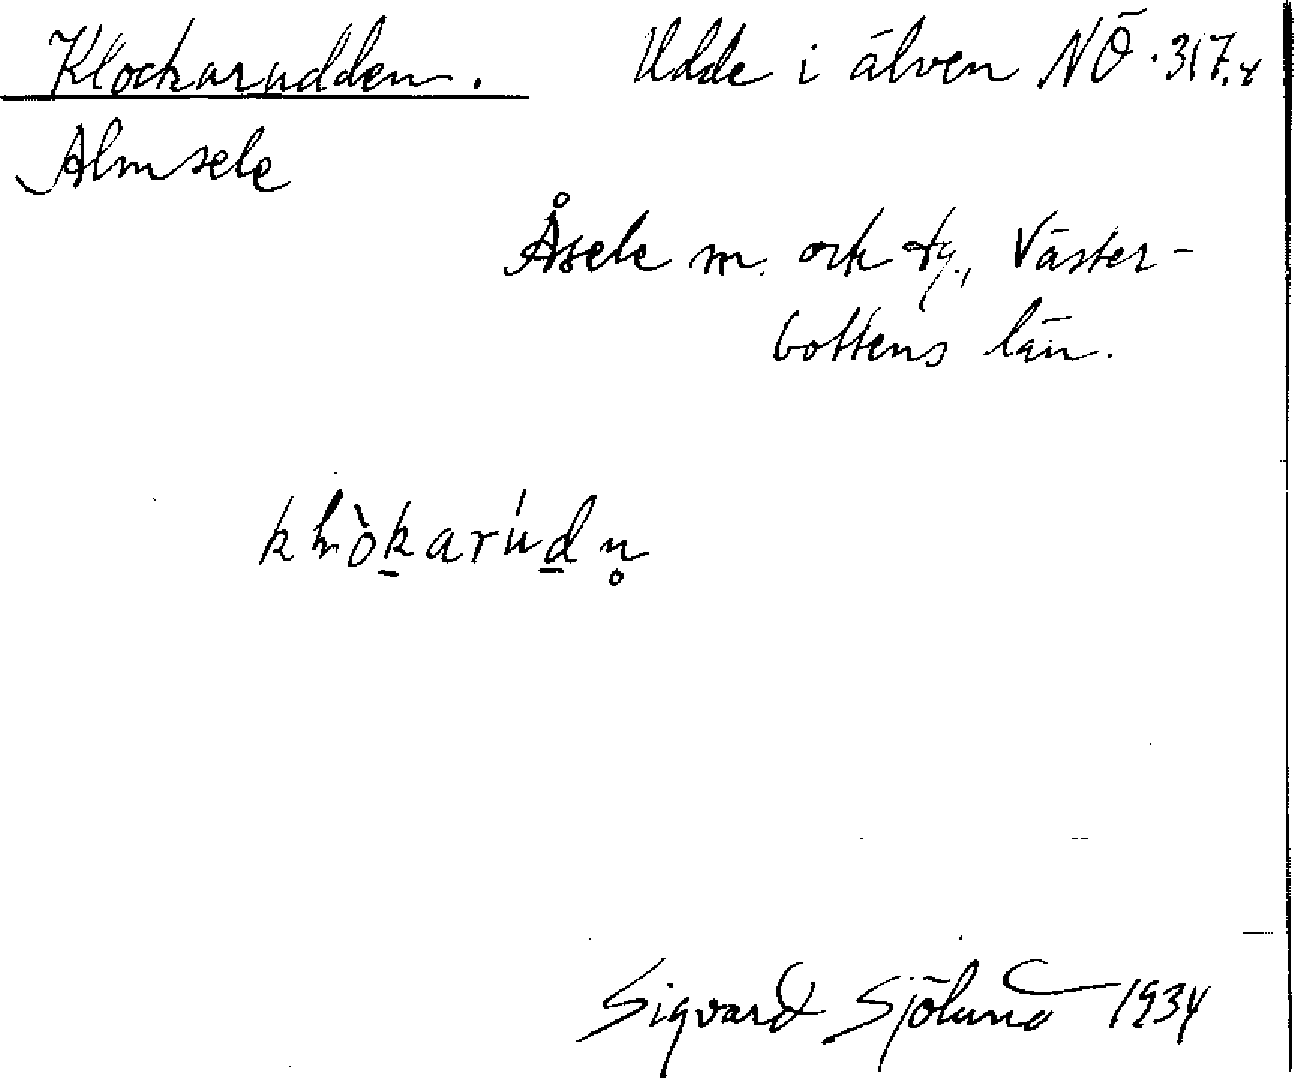 Klockarudden. Udde i älven NÖ. 317.4
Almsele
Åsele m. och tg., Väster-
bottens län.
klòkarúdn̥
Sigvard Sjölund 1934